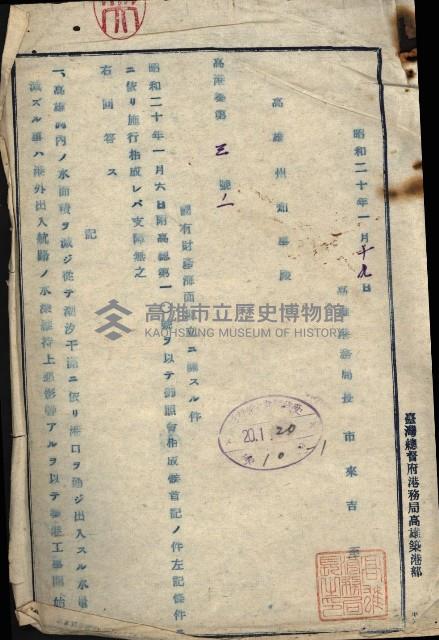 昭和二十年一月十九日
高雄港務局長 市來吉至
高雄州知事殿
高港參第三號ノ一
國有財產海面埋立ニ關スル件
昭和二十年一月六日附高總第一〇號ヲ以テ御照會相成候首記ノ件左記條件
ニ依リ施行相成レバ支障無之
右回答ス
記
一、高雄港內ノ水面積ヲ減ジ從テ潮汐干滿ニ依リ港口ヲ通ジ出入スル水量
減ズル事ハ港外出入航路ノ水深維持上惡影響アルヲ以テ
工事開始
臺灣總督府港務局高雄築港部
20.1.20
第10-1
高雄市立歷史博物館
KAOHSIUNG MUSEUM OF HISTORY